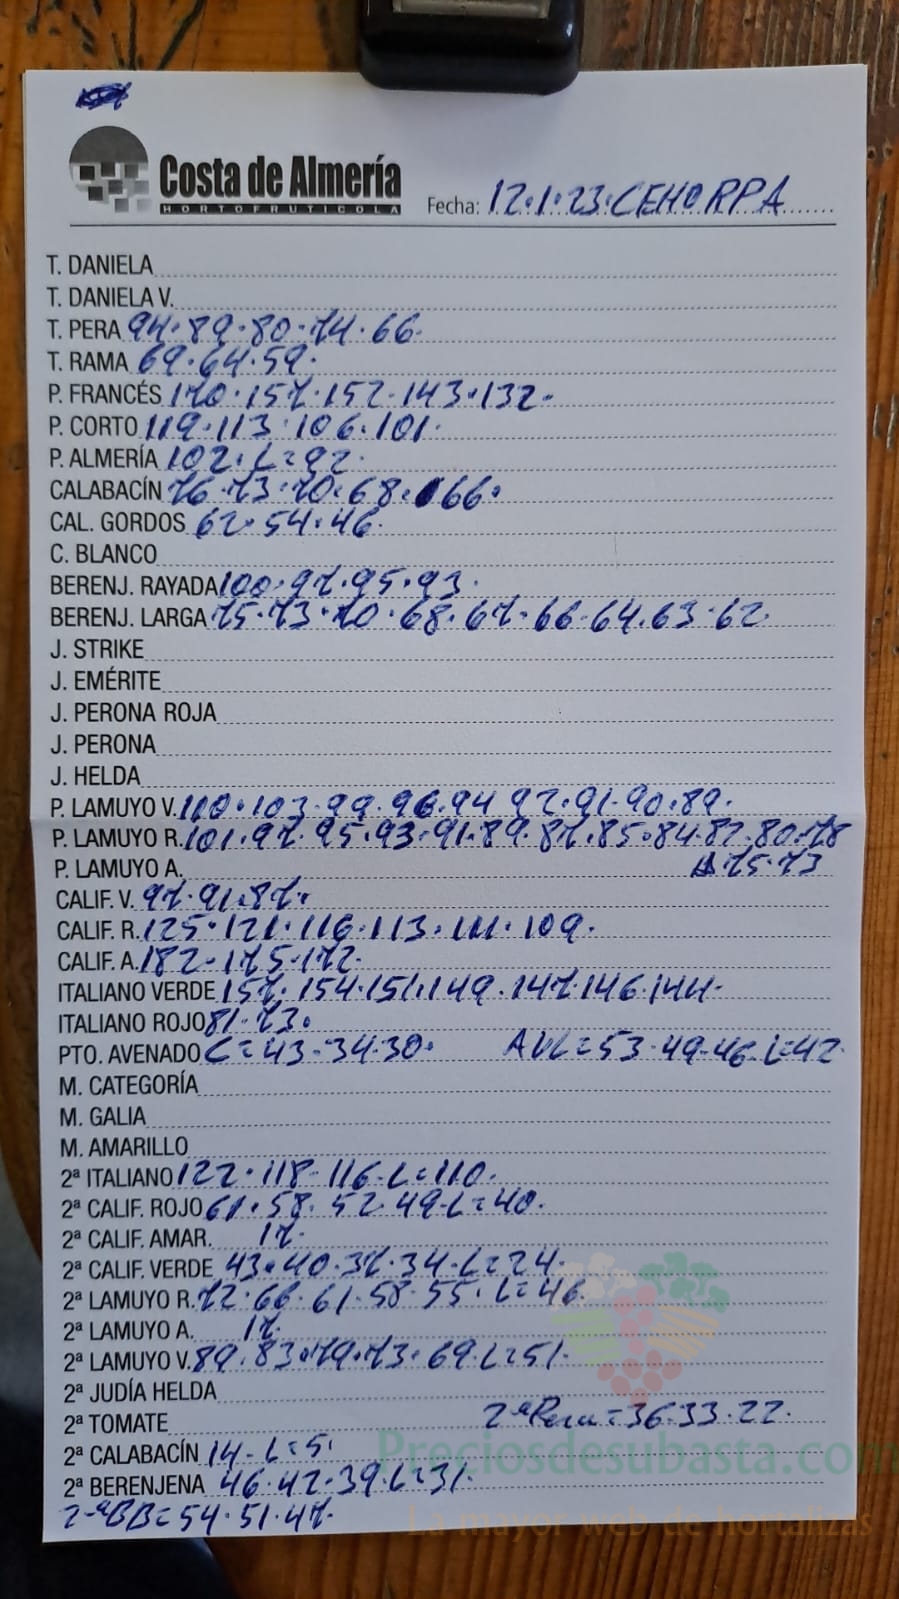 Costa de Almería
HORTOFRUTICOLA
Fecha: 12.1.23.CEHORPA
T. DANIELA
T. DANIELA V.
T. PERA 94.89.80.74.66.
T. RAMA 69.64.59.
P. FRANCÉS 170.157.152.143.132.
P. CORTO 119.113.106.101.
P. ALMERÍA 102.L=92.
CALABACÍN 76.73.70.68.66.
CAL. GORDOS 62.54.46.
C. BLANCO
BERENJ. RAYADA 100.97.95.93.
BERENJ. LARGA 75.73.70.68.67.66.64.63.62.
J. STRIKE
J. EMÉRITE
J. PERONA ROJA
J. PERONA
J. HELDA
P. LAMUYO V. 110.103.99.96.94 92.91.90.89.
P. LAMUYO R. 101.97.95.93.91.89.87.85.84.82.80.78
P. LAMUYO A. 75.73
CALIF. V. 97.91.87.
CALIF. R. 125.121.116.113.111.109.
CALIF. A. 182.175.172.
ITALIANO VERDE 157.154.151.149.147.146.144.
ITALIANO ROJO 81.73.
PTO. AVENADO C=43.34.30. AVL=53.49.46.L=42.
M. CATEGORÍA
M. GALIA
M. AMARILLO
2ª ITALIANO 122.118.116.L=110.
2ª CALIF. ROJO 61.58.52.49.L=40.
2ª CALIF. AMAR. 17.
2ª CALIF. VERDE 43.40.37.34.L=24.
2ª LAMUYO R. 72.66.61.58.55.L=46.
2ª LAMUYO A. 17.
2ª LAMUYO V. 89.83.79.73.69.L=51.
2ª JUDÍA HELDA
2ª TOMATE 2ªPera=36.33.22.
2ª CALABACÍN 14.L=5.
2ª BERENJENA 46.42.39.L=31.
2ªBB=54.51.47.
Preciosdesubasta.com
La mayor web de hortalizas